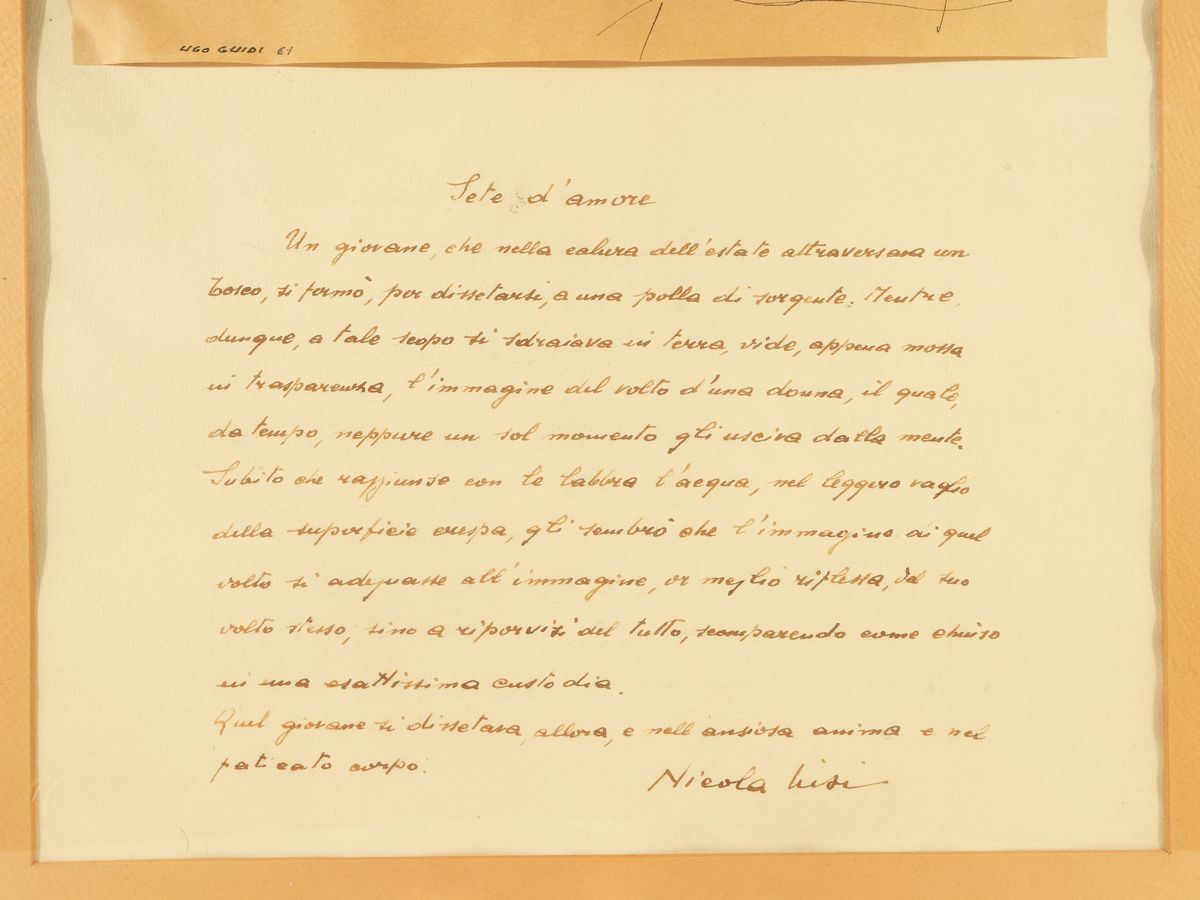 UGO GUIDI 61
Sete d'amore
Un giovane, che nella calura dell'estate attraversava un
bosco, si fermò, per dissetarsi, a una polla di sorgente. Mentre,
dunque, a tale scopo si sdraiava in terra, vide, appena mossa
in trasparenza, l'immagine del volto d'una donna, il quale,
da tempo, neppure un sol momento gli usciva dalla mente.
Subito che raggiunse con le labbra l'acqua, nel leggero vaglio
della superficie crespa, gli sembrò che l'immagine di quel
volto si adeguasse all'immagine, or meglio riflessa, del suo
volto stesso, sino a riporvisi del tutto, scomparendo come chiuso
in una esattissima custodia.
Quel giovane si dissetava, allora, e nell'ansiosa anima e nel
faticato corpo.
Nicola Lisi